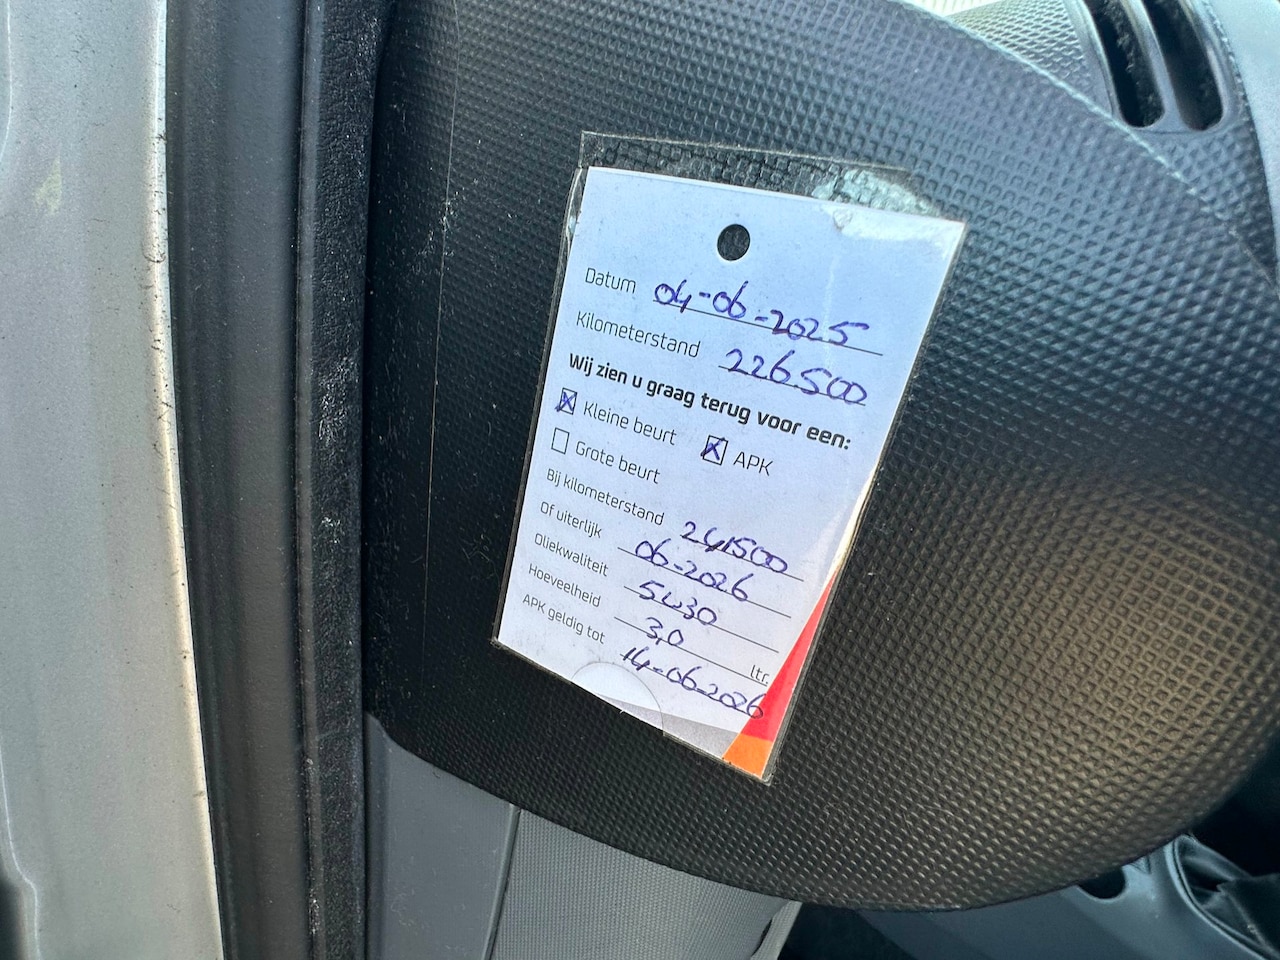 Datum 04-06-2025
Kilometerstand 226.500
Wij zien u graag terug voor een:
Kleine beurt APK
Grote beurt
Bij kilometerstand 241500
Of uiterlijk 06-2026
Oliekwaliteit 5w30
Hoeveelheid 3,0 ltr.
APK geldig tot 14-06-2026